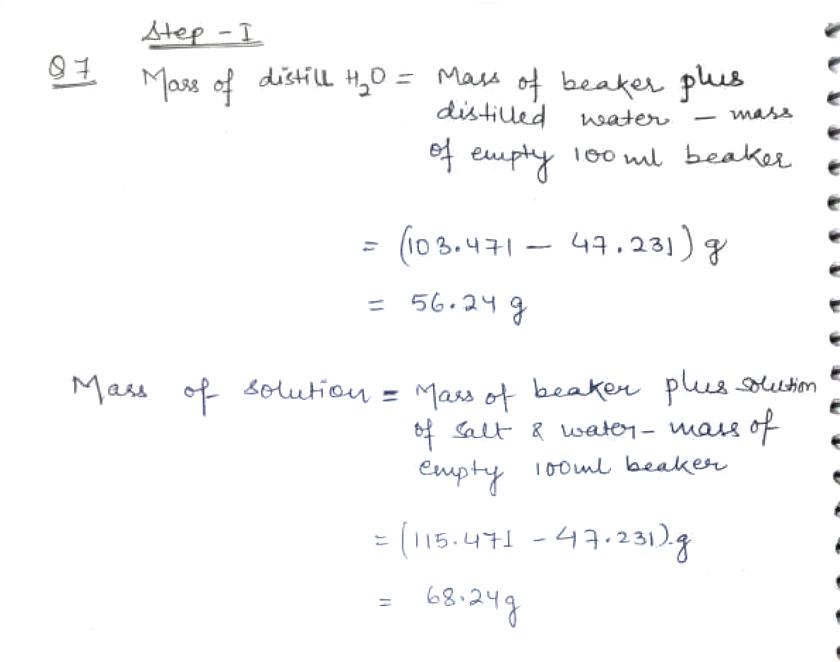 Step - I
Q7 Mass of distill H₂O = Mass of beaker plus
distilled water - mass
of empty 100 ml beaker
= (103.471 - 47.231) g
= 56.24 g
Mass of solution = Mass of beaker plus solution
of salt & water - mass of
empty 100ml beaker
= (115.471 - 47.231).g
= 68.24g